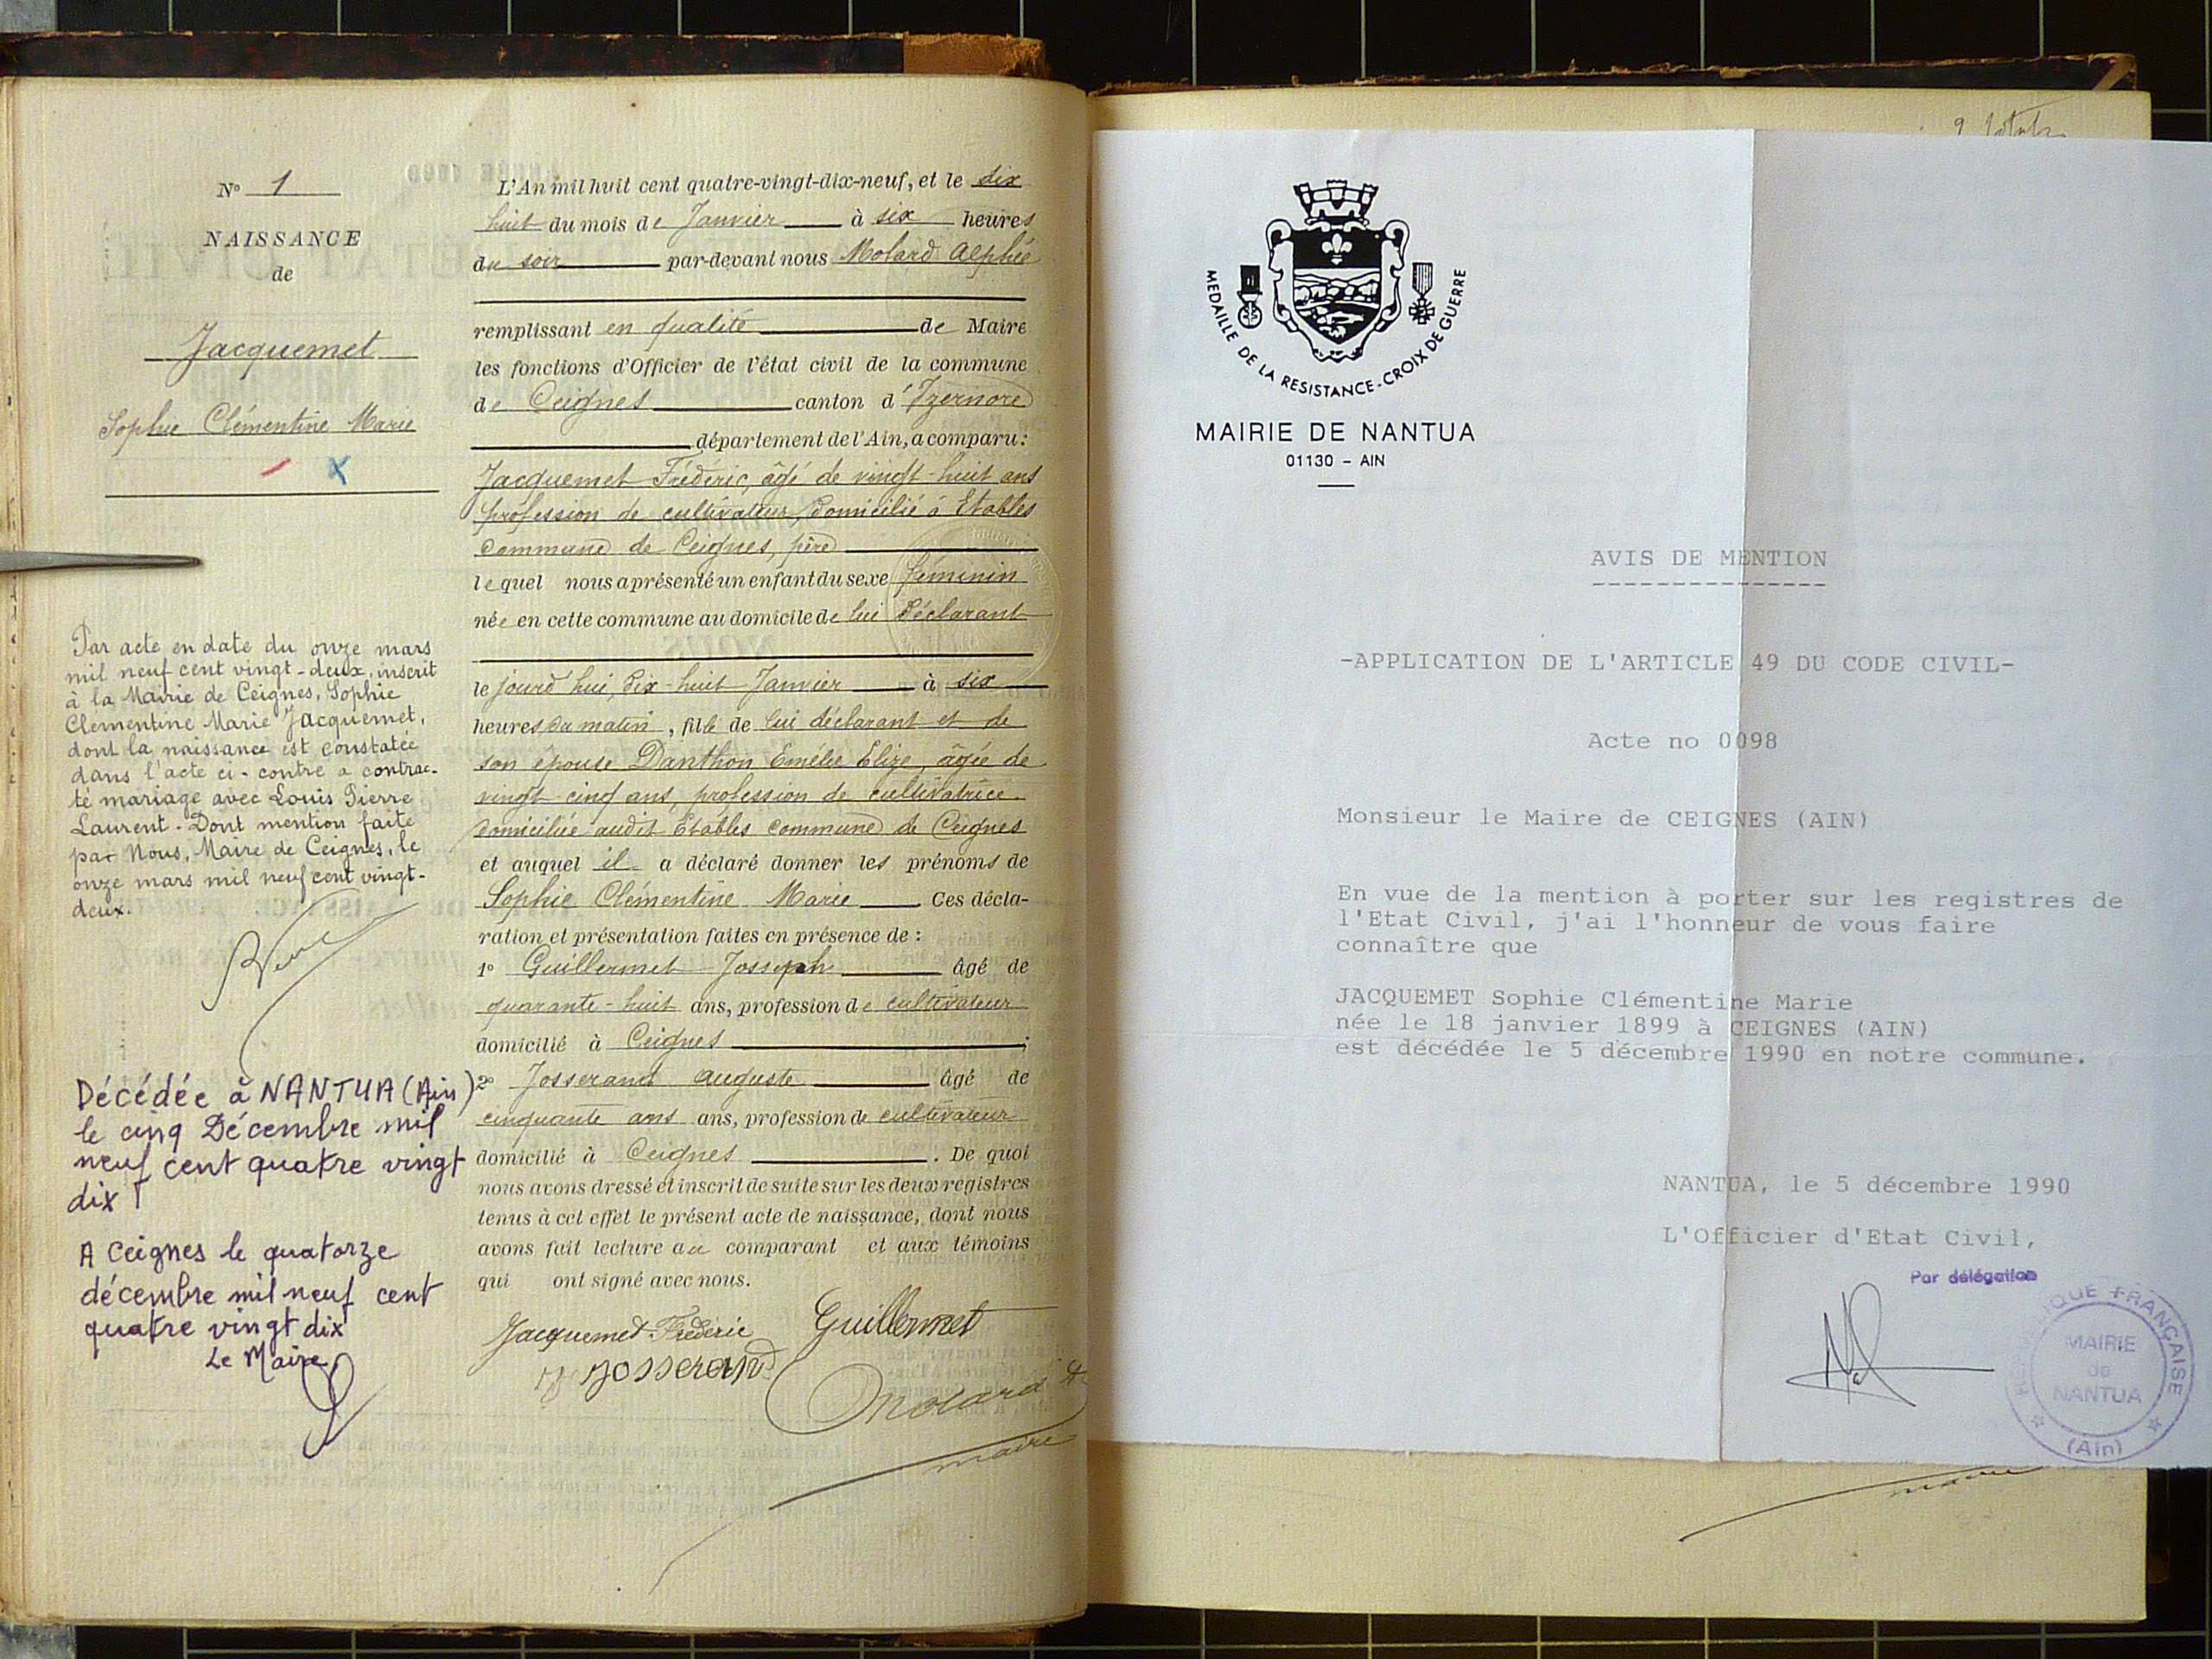 N° 1
NAISSANCE
de
Jacquemet
Sophie Clémentine Marie
Par acte en date du onze mars
mil neuf cent vingt-deux, inscrit
à la Mairie de Ceignes, Sophie
Clementine Marie Jacquemet,
dont la naissance est constatée
dans l'acte ci-contre a contrac-
té mariage avec Louis Pierre
Laurent. Dont mention faite
par Nous, Maire de Ceignes, le
onze mars mil neuf cent vingt-
deux.
Décédée à NANTUA (Ain)
le cinq Décembre mil
neuf cent quatre vingt
dix
A Ceignes le quatorze
décembre mil neuf cent
quatre vingt dix
Le Maire
L'An mil huit cent quatre-vingt-dix-neuf, et le dix
huit du mois de Janvier à six heures
du soir par-devant nous Molard Alphée
remplissant en qualité de Maire
les fonctions d'Officier de l'état civil de la commune
de Ceignes canton d'Izernore
département de l'Ain, a comparu :
Jacquemet Frédéric, âgé de vingt-huit ans
profession de cultivateur, domicilié à Etables
commune de Ceignes, père
lequel nous a présenté un enfant du sexe féminin
née en cette commune au domicile de lui déclarant
le jourd'hui, dix-huit Janvier à six
heures du matin, fille de lui déclarant et de
son épouse Danthon Emélie Elize, âgée de
vingt-cinq ans, profession de cultivatrice
domiciliée audit Etables commune de Ceignes
et auquel il a déclaré donner les prénoms de
Sophie Clémentine Marie Ces décla-
ration et présentation faites en présence de :
1° Guillermet Josseph âgé de
quarante-huit ans, profession de cultivateur
domicilié à Ceignes ;
2° Josserand auguste âgé de
cinquante ans ans, profession de cultivateur
domicilié à Ceignes . De quoi
nous avons dressé et inscrit de suite sur les deux registres
tenus à cet effet le présent acte de naissance, dont nous
avons fait lecture au comparant et aux témoins
qui ont signé avec nous.
Jacquemet Frédéric Guillermet
Josserand
Molard A
maire
MEDAILLE DE LA RESISTANCE - CROIX DE GUERRE
MAIRIE DE NANTUA
01130 - AIN
AVIS DE MENTION
---------------
-APPLICATION DE L'ARTICLE 49 DU CODE CIVIL-
Acte no 0098
Monsieur le Maire de CEIGNES (AIN)
En vue de la mention à porter sur les registres de
l'Etat Civil, j'ai l'honneur de vous faire
connaître que
JACQUEMET Sophie Clémentine Marie
née le 18 janvier 1899 à CEIGNES (AIN)
est décédée le 5 décembre 1990 en notre commune.
NANTUA, le 5 décembre 1990
L'Officier d'Etat Civil,
Par délégation
REPUBLIQUE FRANÇAISE
MAIRIE
de
NANTUA
(Ain)
maire